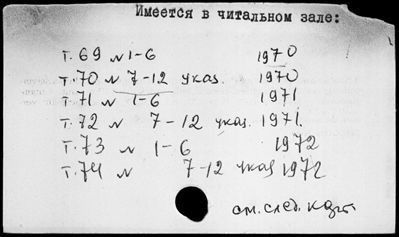 Имеется в читальном зале:
т. 69 N 1-6 1970
т. 70 N 7-12 указ. 1970
т. 71 N 1-6 1971
т. 72 N 7-12 указ. 1971.
т. 73 N 1-6 1972
т. 74 N 7-12 указ 1972
см. след. карт.